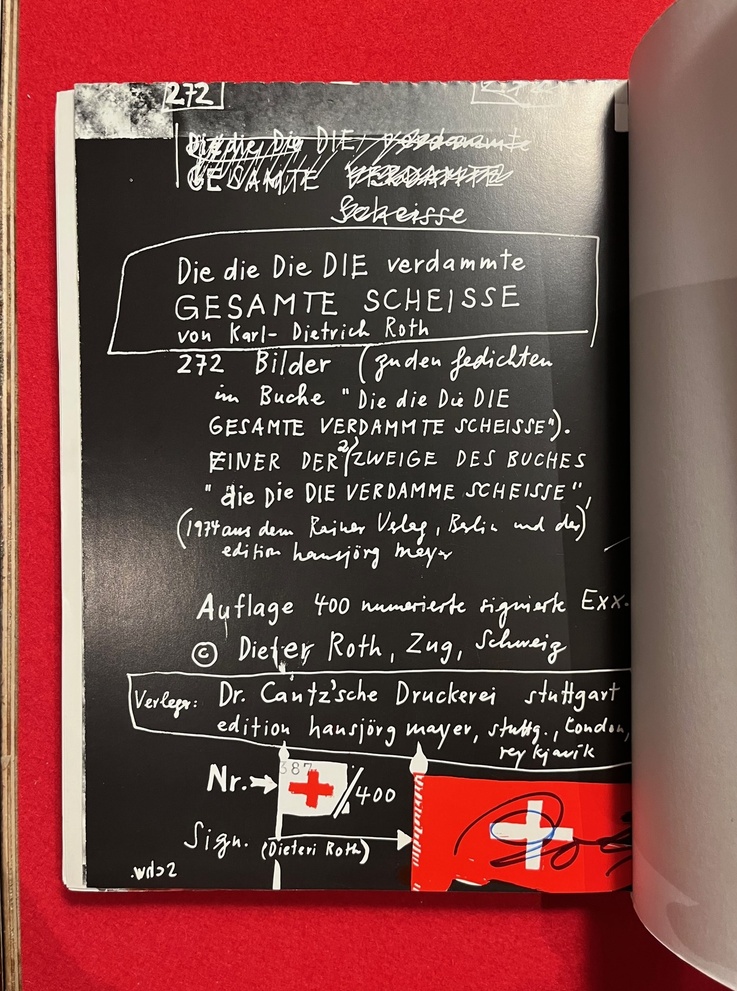 272
Die die Die DIE verdammte
GESAMTE VERDAMMTE
Scheisse
Die die Die DIE verdammte
GESAMTE SCHEISSE
von Karl-Dietrich Roth
272 Bilder (zu den Gedichten
im Buche "Die die Die DIE
GESAMTE VERDAMMTE SCHEISSE").
EINER DER 2 ZWEIGE DES BUCHES
"die Die DIE VERDAMME SCHEISSE",
(1974 aus dem Rainer Verlag, Berlin und der)
edition hansjörg mayer
Auflage 400 numerierte signierte Exx.
© Dieter Roth, Zug, Schweiz
Verleger: Dr. Cantz'sche Druckerei stuttgart
edition hansjörg mayer, stuttg., London,
reykjavik
Nr. 387/400
Sign. (Dieteri Roth)